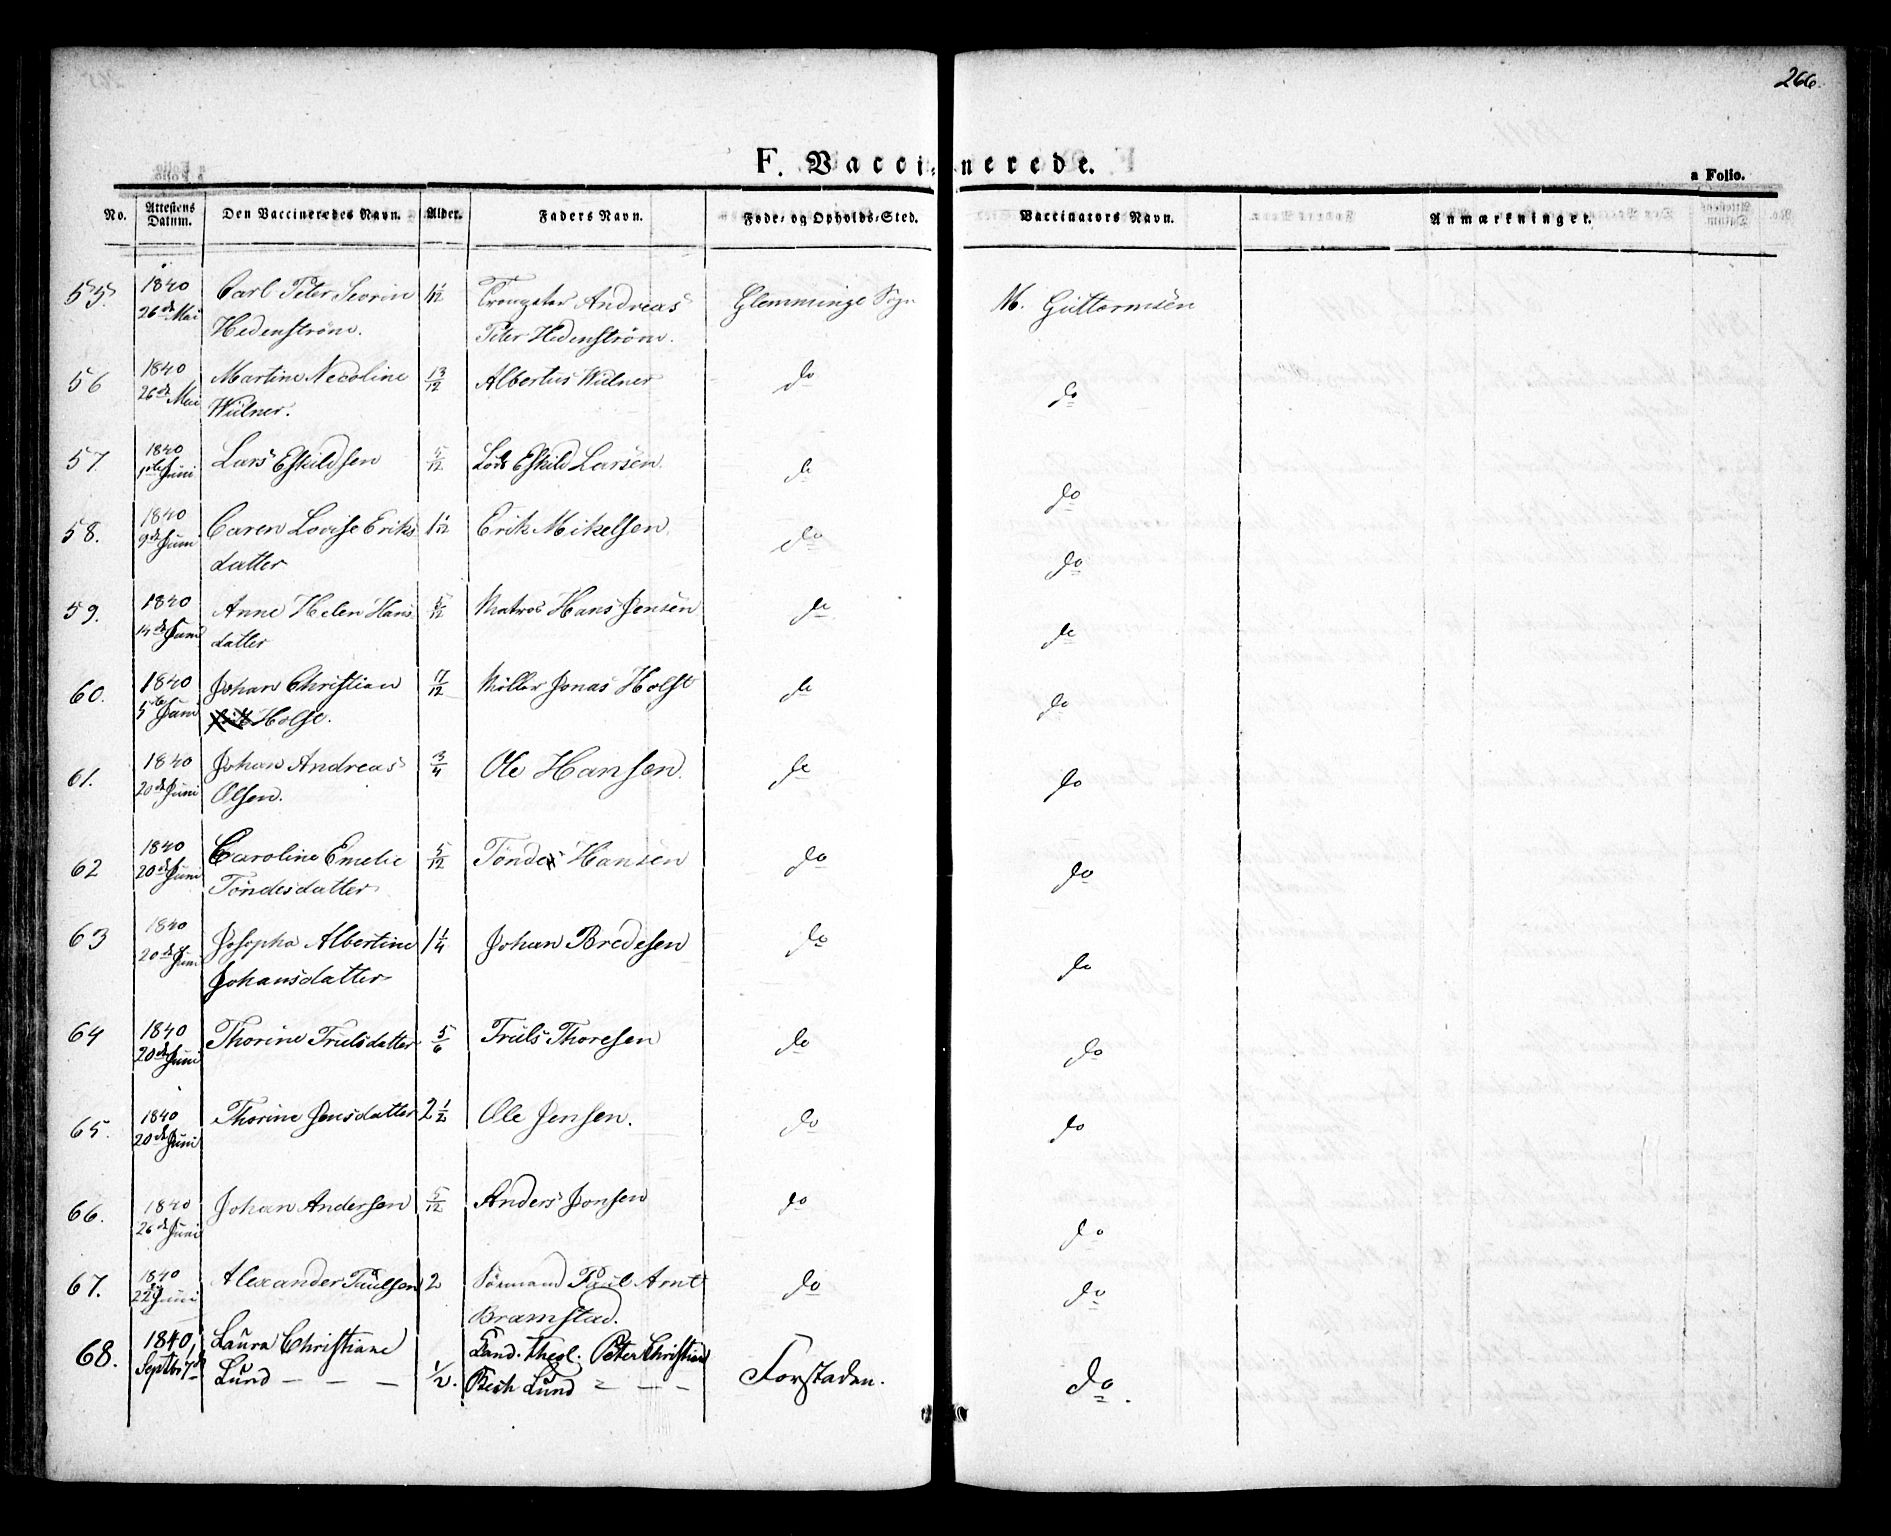 266.
F. Vaccinerede.
a Folio.
No. Attestens Datum. Den Vaccineredes Navn. Alder. Faders Navn. Føde- og Opholds-Sted. Vaccinators Navn. Anmærkninger.
55. 1840 Carl Peter Seorin 1 1/12 Andreas Glemminge Sogn M. Guttormsen
26de Mai Hedenström. Peter Hedenström.
56 1840 Martine Necoline 13/12 Albertus Wülner do do
26de Mai Wülner.
57. 1840 Lars Eskildsen 5/12 Lods Eskild Larsen do do
1ste Juni
58. 1840 Caren Lovise Eriks 1 1/12 Erik Mikelsen do do
9de Juni datter
59. 1840 Anne Helen Hans 5/12 Matros Hans Jensen do do
14de Juni datter
60. 1840 Johan Christian 17/12 Möller Jonas Holst do do
5te Juni Holst.
61. 1840 Johan Andreas 3/4 Ole Hansen do do
20de Juni Olsen.
62 1840 Caroline Emelie 5/12 Tönde Hansen do do
20de Juni Töndesdatter
63 1840 Josepha Albertine 1 1/4 Johan Bredesen do do
20de Juni Johansdatter
64 1840 Thorine Trulsdatter 5/6 Truls Thoresen do do
20de Juni
65. 1840 Thorine Jensdatter 2 1/2 Ole Jensen. do do
20de Juni
66. 1840 Johan Andersen 5/12 Anders Jonsen do do
26de Juni
67. 1840 Alexander Paulsen 2 Sömand Paul Arnt do do
22de Juni Bramstad.
68. 1840, Laura Christiane 1/2. Cand. Theol. Peter Christian Forstaden. do.
Septbr 7de Lund – – – Bech Lund – – –